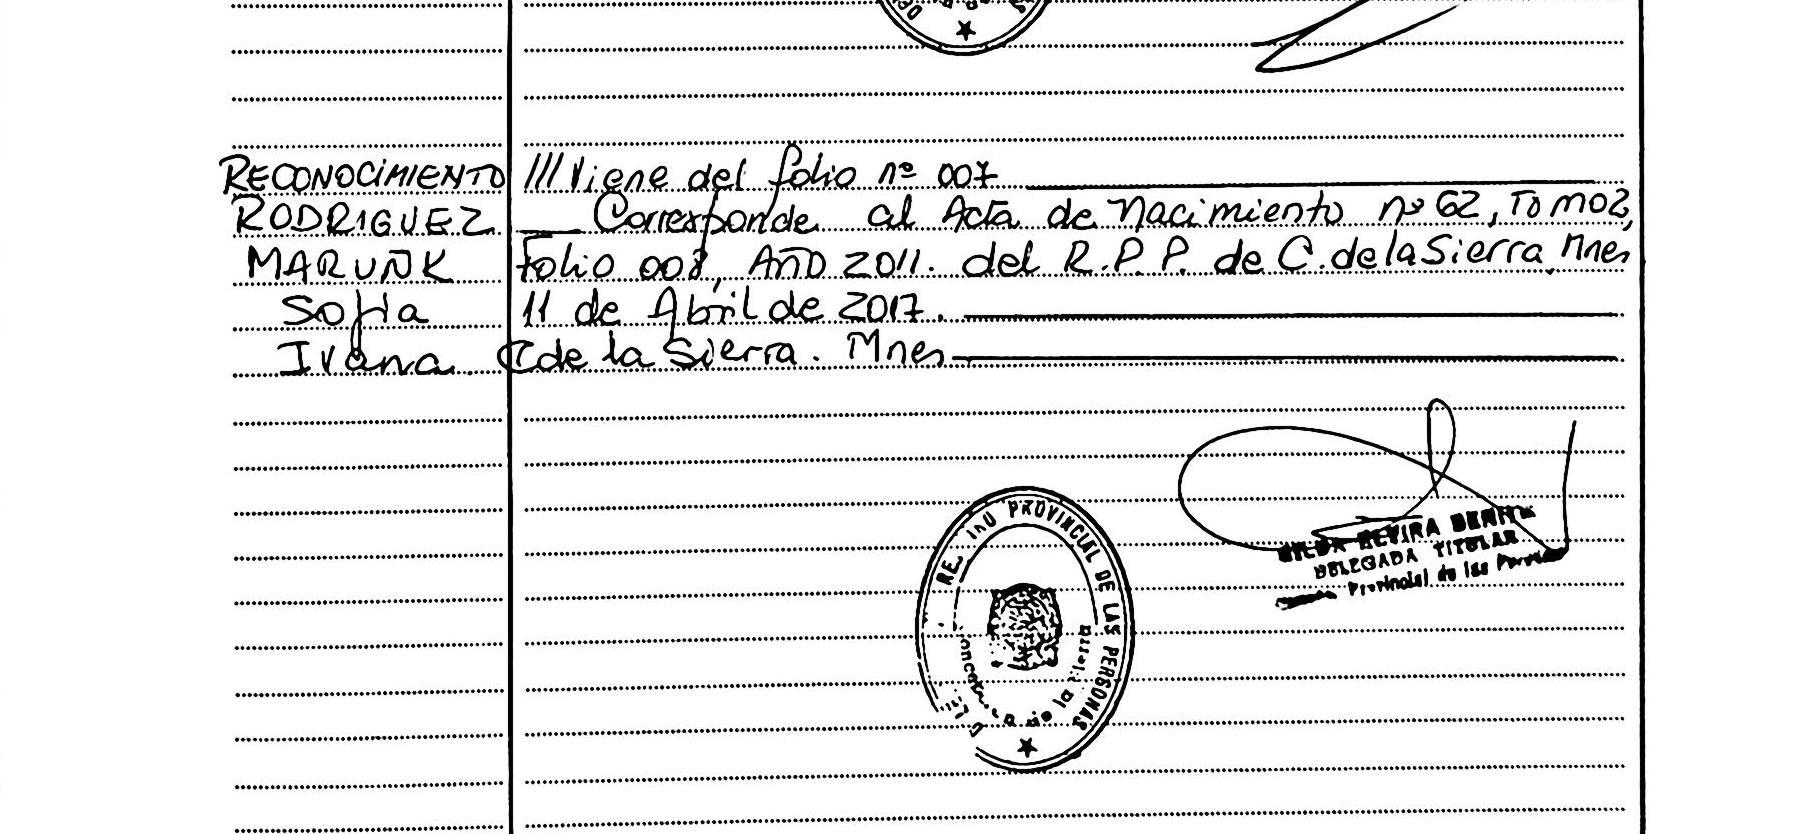 RECONOCIMIENTO /// Viene del folio nº 007
RODRIGUEZ Corresponde al Acta de Nacimiento nº 62, Tomo 2,
MARUÑK Folio 008, Año 2011. del R.P.P. de C. de la Sierra, Mnes
Sofia 11 de Abril de 2017.
Ivana C de la Sierra. Mnes
PROVINCIAL DE LAS PERSONAS
de la
ELVIRA
DELEGADA TITULAR
Provincial de las